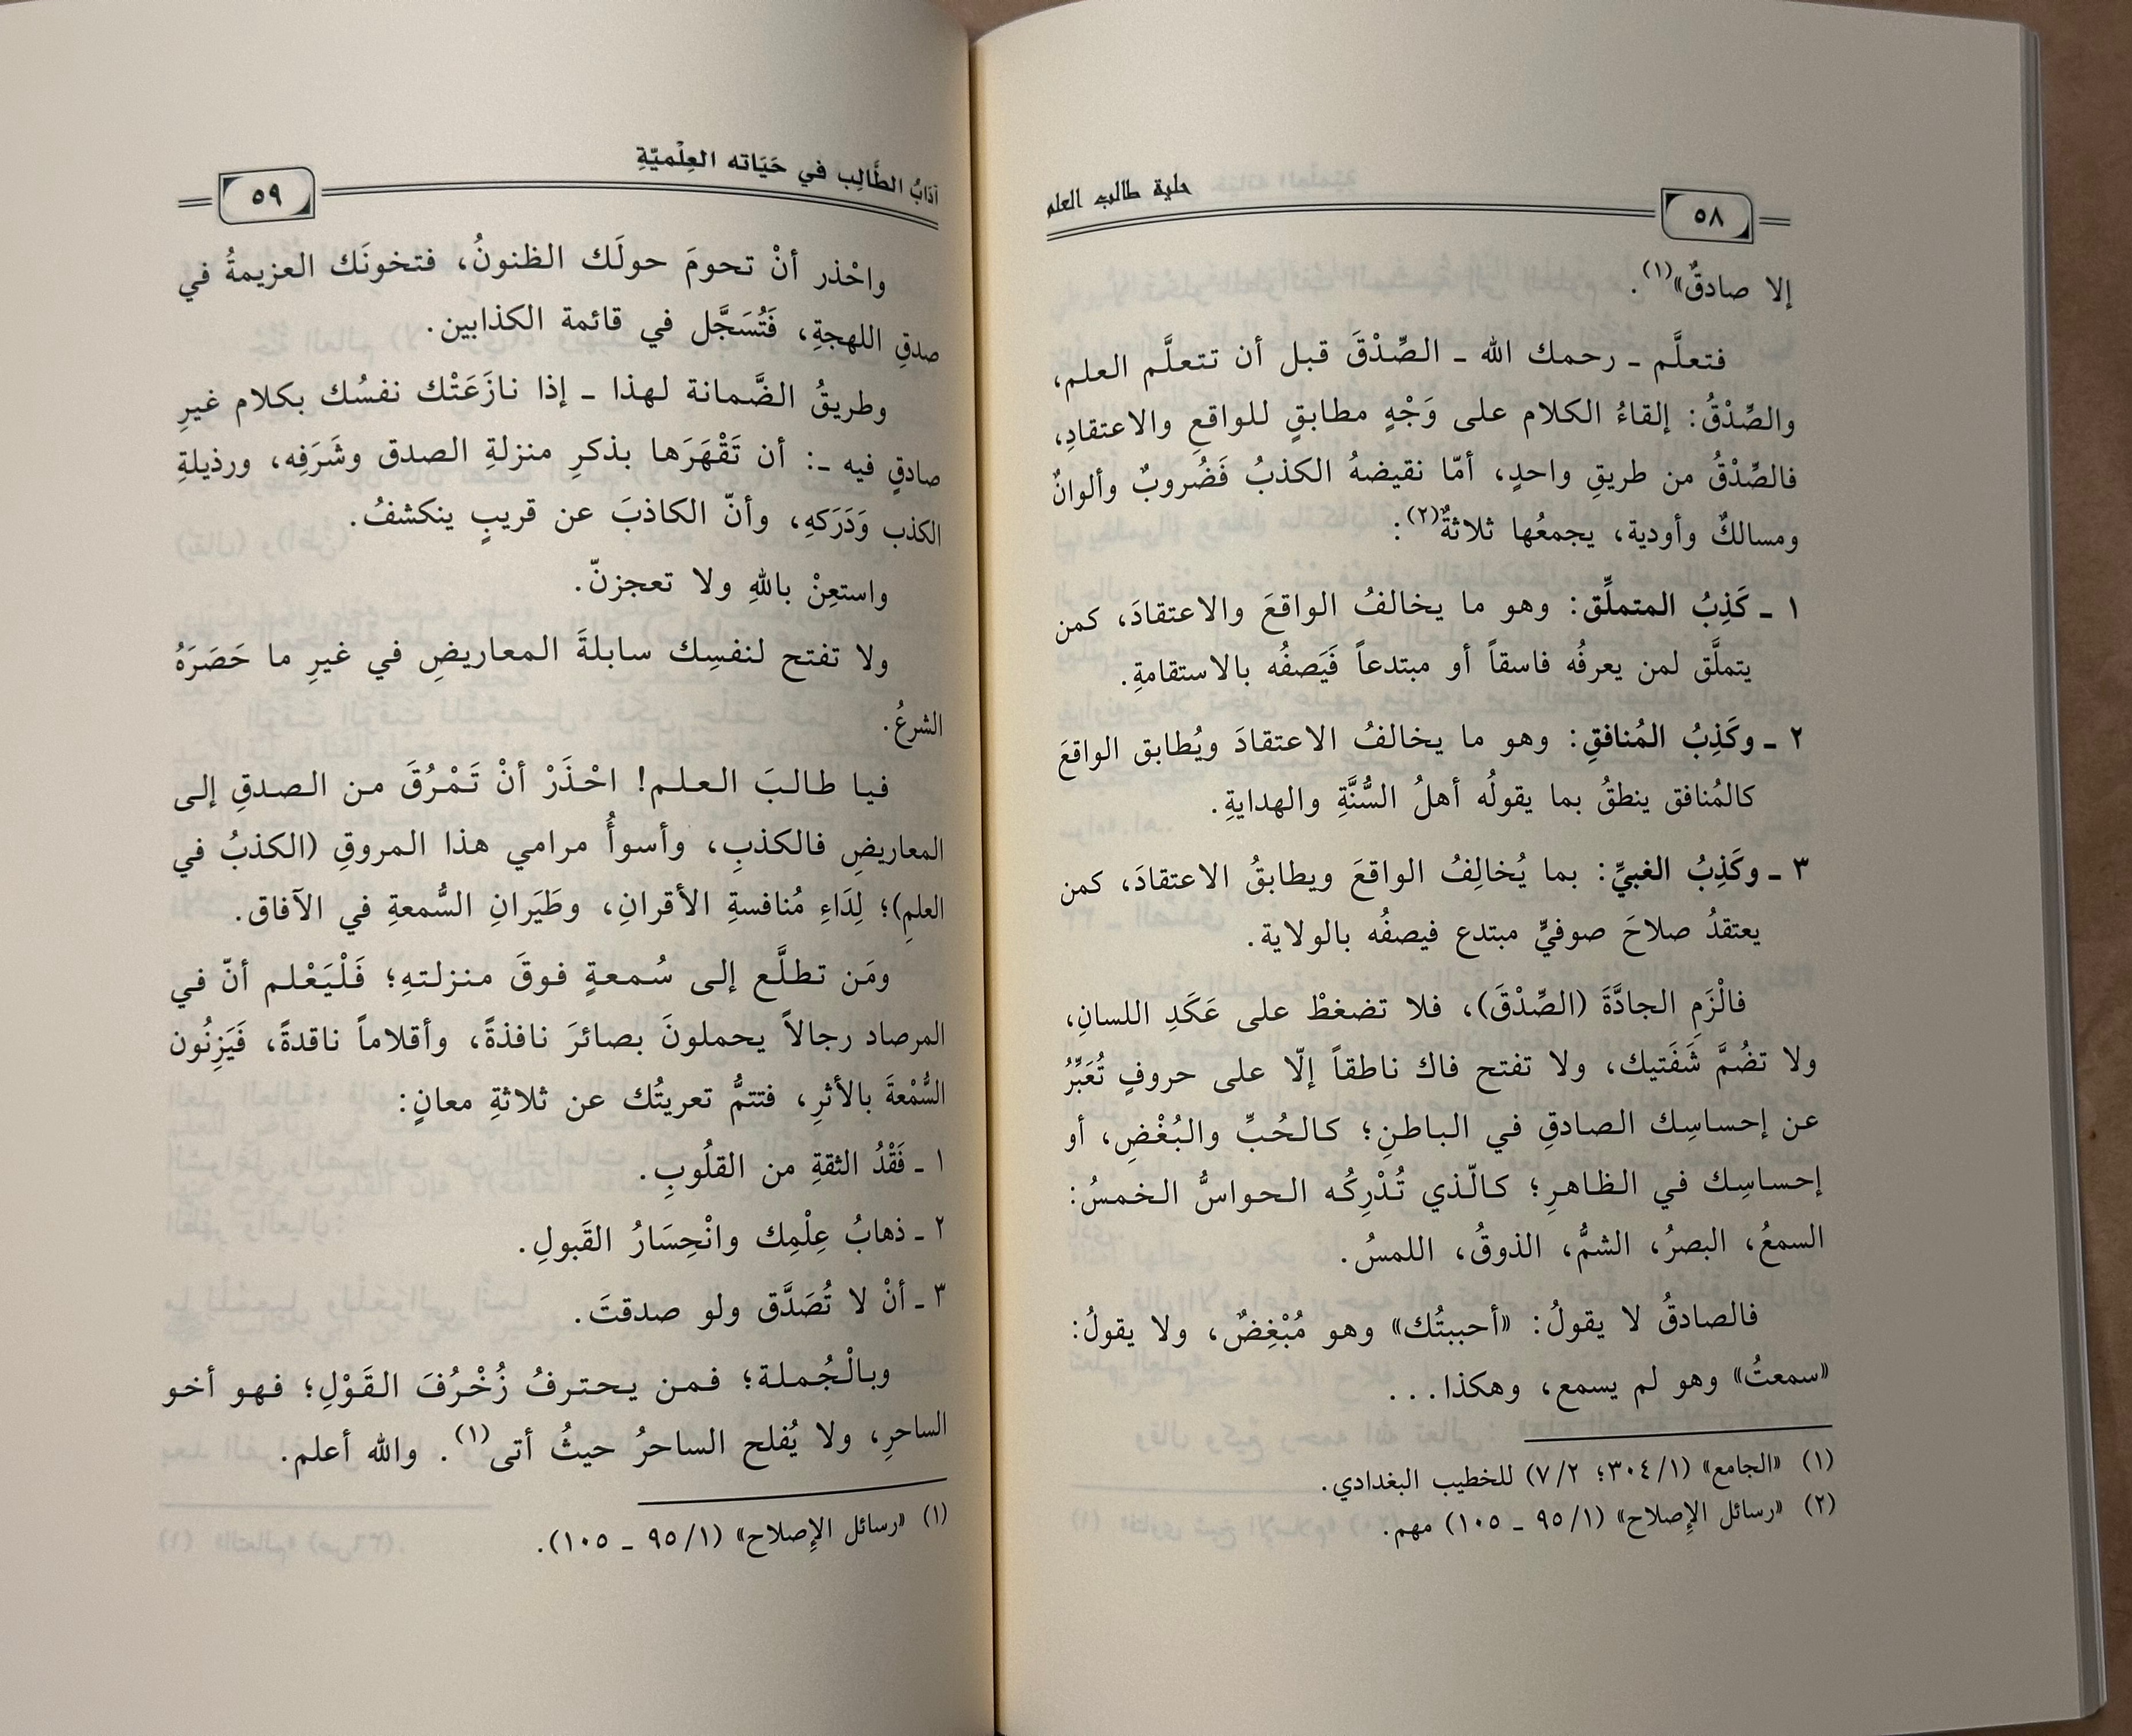 حلية طالب العلم
٥٨
إلا صادقٌ»(١).
فتعلَّم ـ رحمك الله ـ الصِّدْقَ قبل أن تتعلَّم العلم،
والصِّدْقُ: إلقاءُ الكلام على وَجْهٍ مطابقٍ للواقعِ والاعتقادِ،
فالصِّدْقُ من طريقِ واحدٍ، أمّا نقيضهُ الكذبُ فَضُروبٌ وألوانٌ
ومسالكٌ وأودية، يجمعُها ثلاثةٌ(٢):
١ ـ كَذِبُ المتملِّق: وهو ما يخالفُ الواقعَ والاعتقادَ، كمن
يتملَّق لمن يعرفُه فاسقاً أو مبتدعاً فَيَصفُه بالاستقامةِ.
٢ ـ وكَذِبُ المُنافقِ: وهو ما يخالفُ الاعتقادَ ويُطابق الواقعَ
كالمُنافق ينطقُ بما يقولُه أهلُ السُّنَّةِ والهدايةِ.
٣ ـ وكَذِبُ الغبيِّ: بما يُخالِفُ الواقعَ ويطابقُ الاعتقادَ، كمن
يعتقدُ صلاحَ صوفيٍّ مبتدع فيصفُه بالولاية.
فالْزَمِ الجادَّةَ (الصِّدْقَ)، فلا تضغطْ على عَكَدِ اللسانِ،
ولا تضُمَّ شَفَتيك، ولا تفتح فاك ناطقاً إلّا على حروفٍ تُعَبِّرُ
عن إحساسِك الصادقِ في الباطنِ؛ كالحُبِّ والبُغْضِ، أو
إحساسِك في الظاهرِ؛ كالّذي تُدْرِكُه الحواسُّ الخمسُ:
السمعُ، البصرُ، الشمُّ، الذوقُ، اللمسُ.
فالصادقُ لا يقولُ: «أحببتُك» وهو مُبْغِضٌ، ولا يقولُ:
«سمعتُ» وهو لم يسمع، وهكذا...
(١) «الجامع» (٣٠٤/١؛ ٧/٢) للخطيب البغدادي.
(٢) «رسائل الإصلاح» (٩٥/١ ـ ١٠٥) مهم.
آدَابُ الطَّالِب في حَيَاته العِلْميّةِ
٥٩
واحْذر أنْ تحومَ حولَك الظنونُ، فتخونَك العزيمةُ في
صدقِ اللهجةِ، فَتُسَجَّل في قائمة الكذابين.
وطريقُ الضَّمانة لهذا ـ إذا نازَعَتْك نفسُك بكلام غيرِ
صادقٍ فيه ـ: أن تَقْهَرَها بذكرِ منزلةِ الصدق وشَرَفِه، ورذيلةِ
الكذب وَدَرَكهِ، وأنّ الكاذبَ عن قريبٍ ينكشفُ.
واستعِنْ باللهِ ولا تعجزنّ.
ولا تفتح لنفسِك سابلةَ المعاريضِ في غيرِ ما حَصَرَهُ
الشرعُ.
فيا طالبَ العلم! احْذَرْ أنْ تَمْرُقَ من الصدقِ إلى
المعاريضِ فالكذبِ، وأسوأُ مرامي هذا المروقِ (الكذبُ في
العلمِ)؛ لِدَاءِ مُنافسةِ الأقرانِ، وطَيَرانِ السُّمعةِ في الآفاق.
ومَن تطلَّع إلى سُمعةٍ فوقَ منزلتهِ؛ فَلْيَعْلم أنّ في
المرصاد رجالاً يحملونَ بصائرَ نافذةً، وأقلاماً ناقدةً، فَيَزِنُون
السُّمْعةَ بالأثرِ، فتتمُّ تعريتُك عن ثلاثةِ معانٍ:
١ ـ فَقْدُ الثقةِ من القلُوبِ.
٢ ـ ذهابُ عِلْمِك وانْحِسَارُ القَبولِ.
٣ ـ أنْ لا تُصَدَّق ولو صدقتَ.
وبالْجُملة؛ فمن يحترفُ زُخْرُفَ القَوْلِ؛ فهو أخو
الساحرِ، ولا يُفلح الساحرُ حيثُ أتى(١). والله أعلم.
(١) «رسائل الإصلاح» (٩٥/١ ـ ١٠٥).